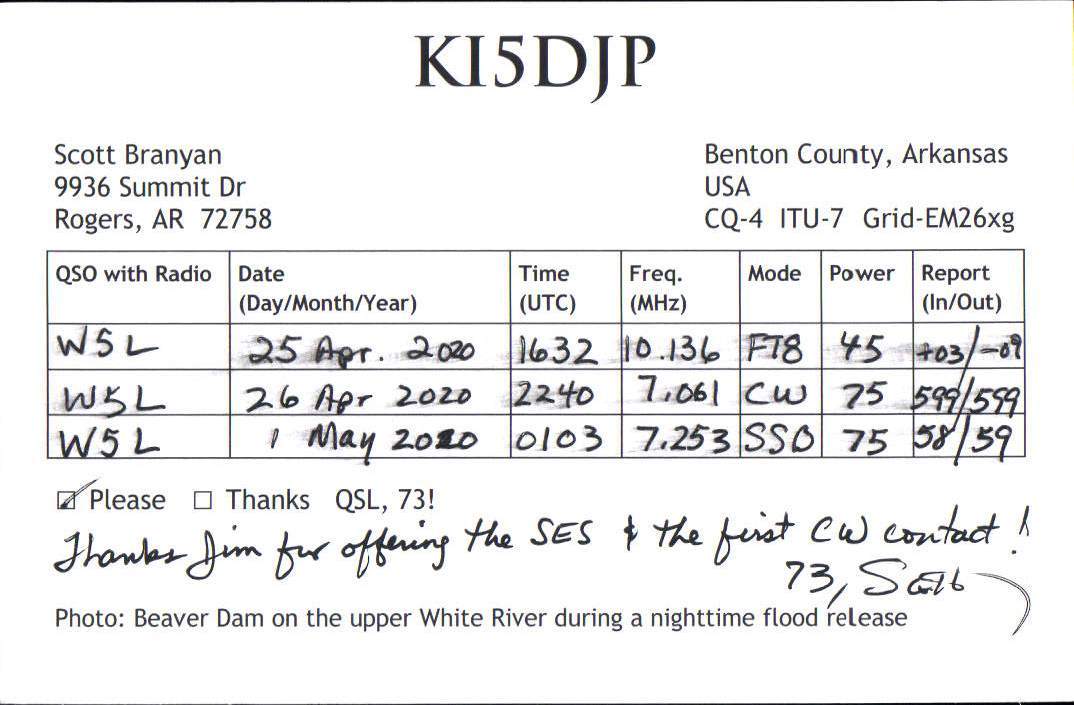 KI5DJP
Scott Branyan
9936 Summit Dr
Rogers, AR 72758
Benton County, Arkansas
USA
CQ-4 ITU-7 Grid-EM26xg
QSO with Radio Date (Day/Month/Year) Time (UTC) Freq. (MHz) Mode Power Report (In/Out)
W5L 25 Apr. 2020 1632 10.136 FT8 45 +03/-09
W5L 26 Apr 2020 2240 7.061 CW 75 599/599
W5L 1 May 2020 0103 7.253 SSB 75 58/59
Please Thanks QSL, 73!
Thanks Jim for offering the SES & the first CW contact!
73, Scott
Photo: Beaver Dam on the upper White River during a nighttime flood release